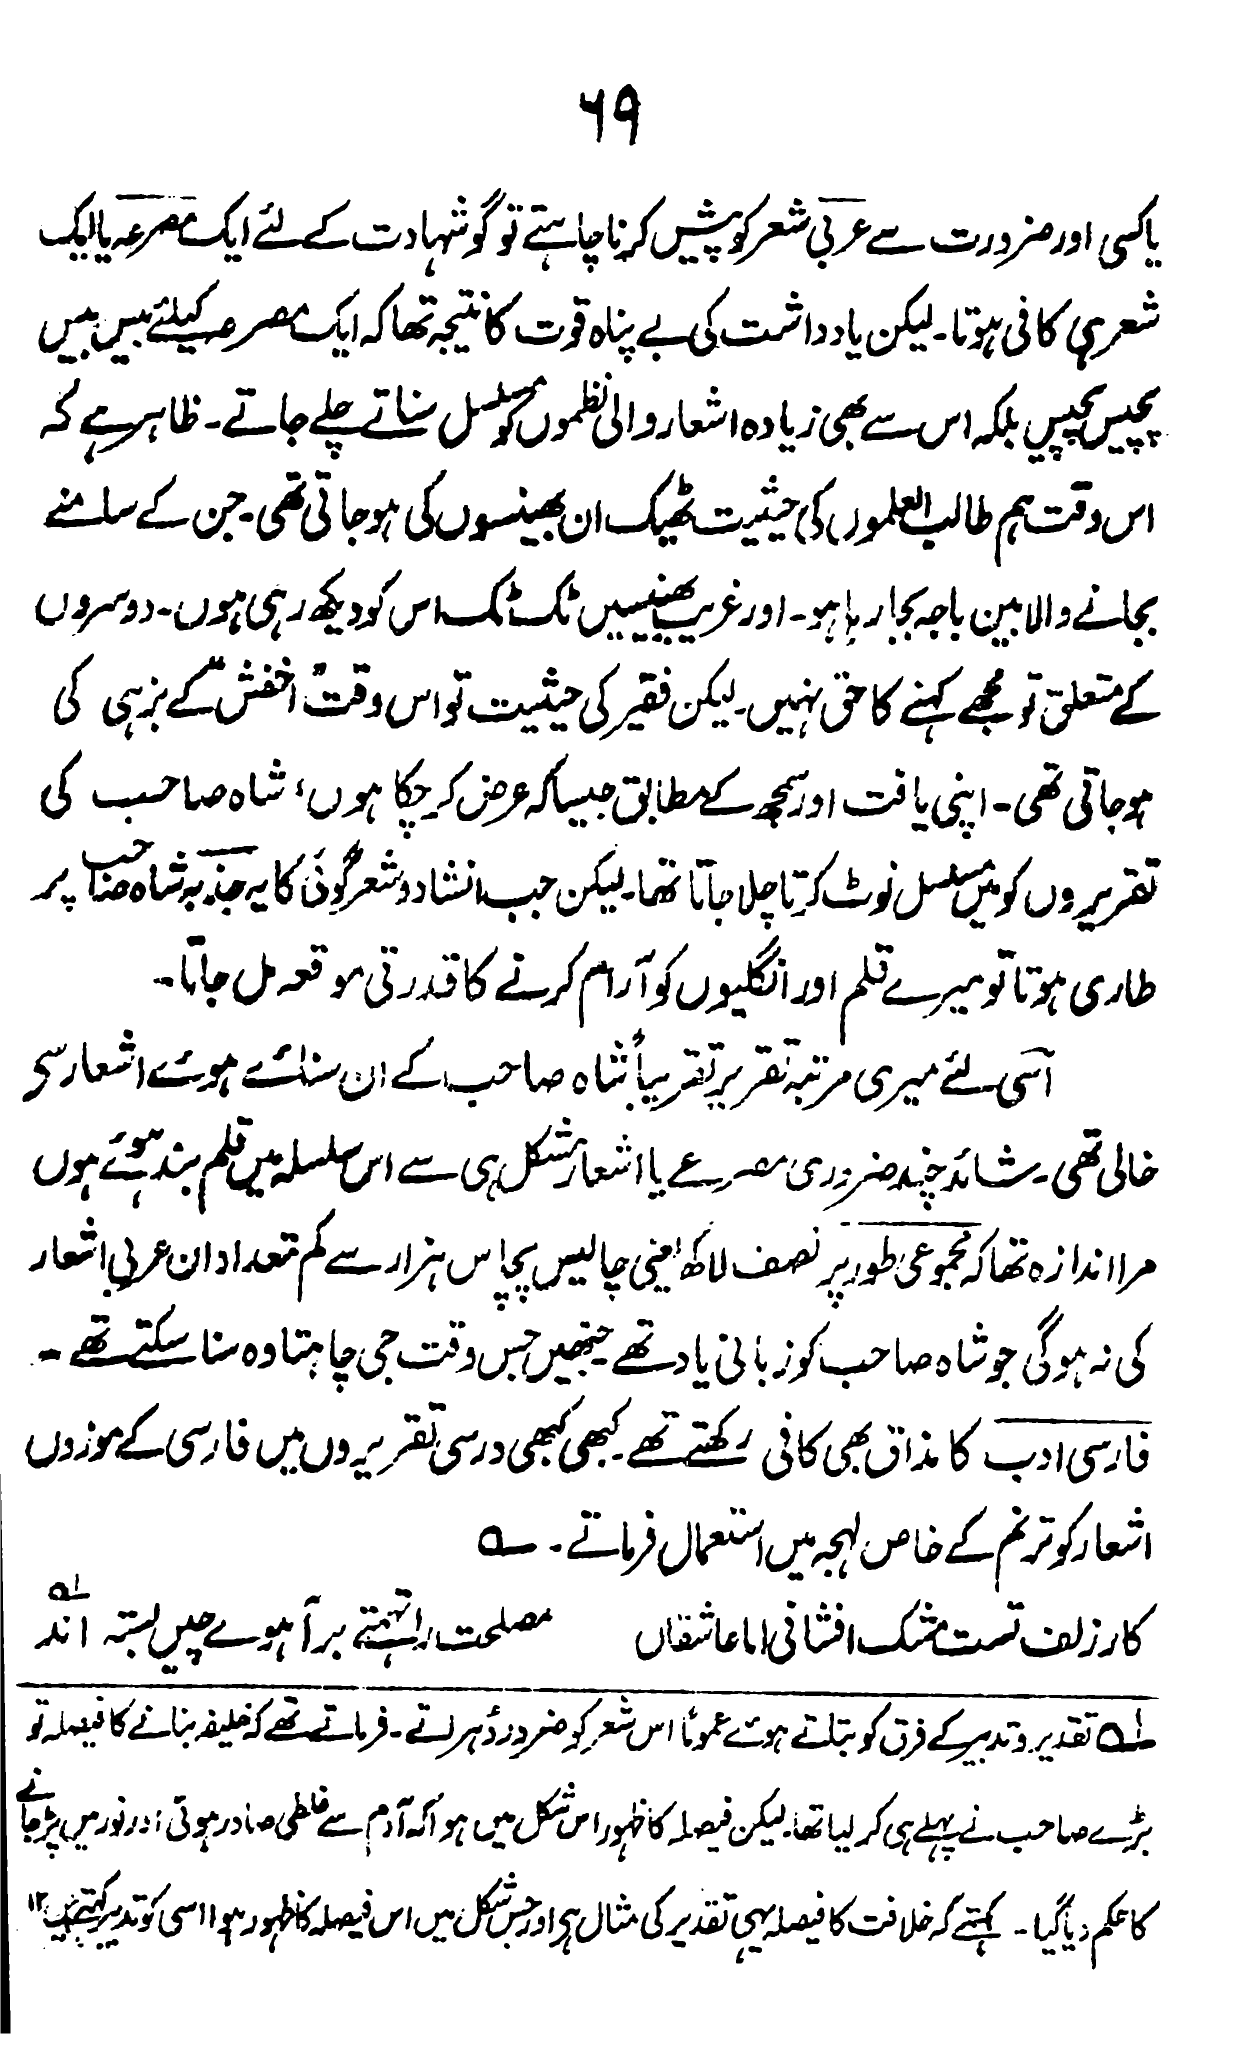 ۶۹
یا کسی اور ضرورت سے عربی شعر کو پیش کرنا چاہتے تو گو شہادت کے لئے ایک مصرعہ یا ایک
شعر ہی کافی ہوتا۔ لیکن یادداشت کی بے پناہ قوت کا نتیجہ تھا کہ ایک مصرعہ کیلئے بیس بیس
پچیس پچیس بلکہ اس سے بھی زیادہ اشعار والی نظموں کو مسلسل سناتے چلے جاتے۔ ظاہر ہے کہ
اس وقت ہم طالب العلموں کی حیثیت ٹھیک ان بھینسوں کی ہو جاتی تھی۔ جن کے سامنے
بجانے والا بین باجہ بجا رہا ہو۔ اور غریب بھینسیں ٹک ٹک اس کو دیکھ رہی ہوں۔ دوسروں
کے متعلق تو مجھے کہنے کا حق نہیں۔ لیکن فقیر کی حیثیت تو اس وقت "اخفش" کے بز ہی کی
ہو جاتی تھی۔ اپنی یافت اور سمجھ کے مطابق جیسا کہ عرض کر چکا ہوں، شاہ صاحب کی
تقریروں کو میں مسلسل نوٹ کرتا چلا جاتا تھا۔ لیکن جب انشاد و شعر گوئی کا یہ جذبہ شاہ صاحب پر
طاری ہوتا تو میرے قلم اور انگلیوں کو آرام کرنے کا قدرتی موقعہ مل جاتا۔
اسی لئے میری مرتبہ تقریر تقریباً شاہ صاحب کے ان سنائے ہوئے اشعار سی
خالی تھی۔ شائد چند ضروری مصرعے یا اشعار مشکل ہی سے اس سلسلہ میں قلم بند ہوئے ہوں
مرا اندازہ تھا کہ مجموعی طور پر نصف لاکھ یعنی چالیس پچاس ہزار سے کم تعداد ان عربی اشعار
کی نہ ہوگی جو شاہ صاحب کو زبانی یاد تھے جنھیں جس وقت جی چاہتا وہ سنا سکتے تھے۔
فارسی ادب کا مذاق بھی کافی رکھتے تھے۔ کبھی کبھی درسی تقریروں میں فارسی کے موزوں
اشعار کو ترنم کے خاص لہجہ میں استعمال فرماتے۔ ؎
کار زلف تست مشک افشانی اما عاشقاں مصلحت را تہمتے بر آہوے چیں بستہ اند ؎۱
؎۱ تقدیر و تدبیر کے فرق کو بتلاتے ہوئے عموماً اس شعر کو ضرور دُہراتے۔ فرماتے تھے کہ خلیفہ بنانے کا فیصلہ تو
بڑے صاحب نے پہلے ہی کر لیا تھا۔ لیکن فیصلہ کا ظہور اس شکل میں ہوا کہ آدم سے غلطی صادر ہوئی اور نور میں پڑ جانے
کا حکم دیا گیا۔ کہتے کہ خلافت کا فیصلہ یہی تقدیر کی مثال ہی اور جس شکل میں اس فیصلہ کا ظہور ہوا اسی کو تدبیر کہتے ہیں ۱۲